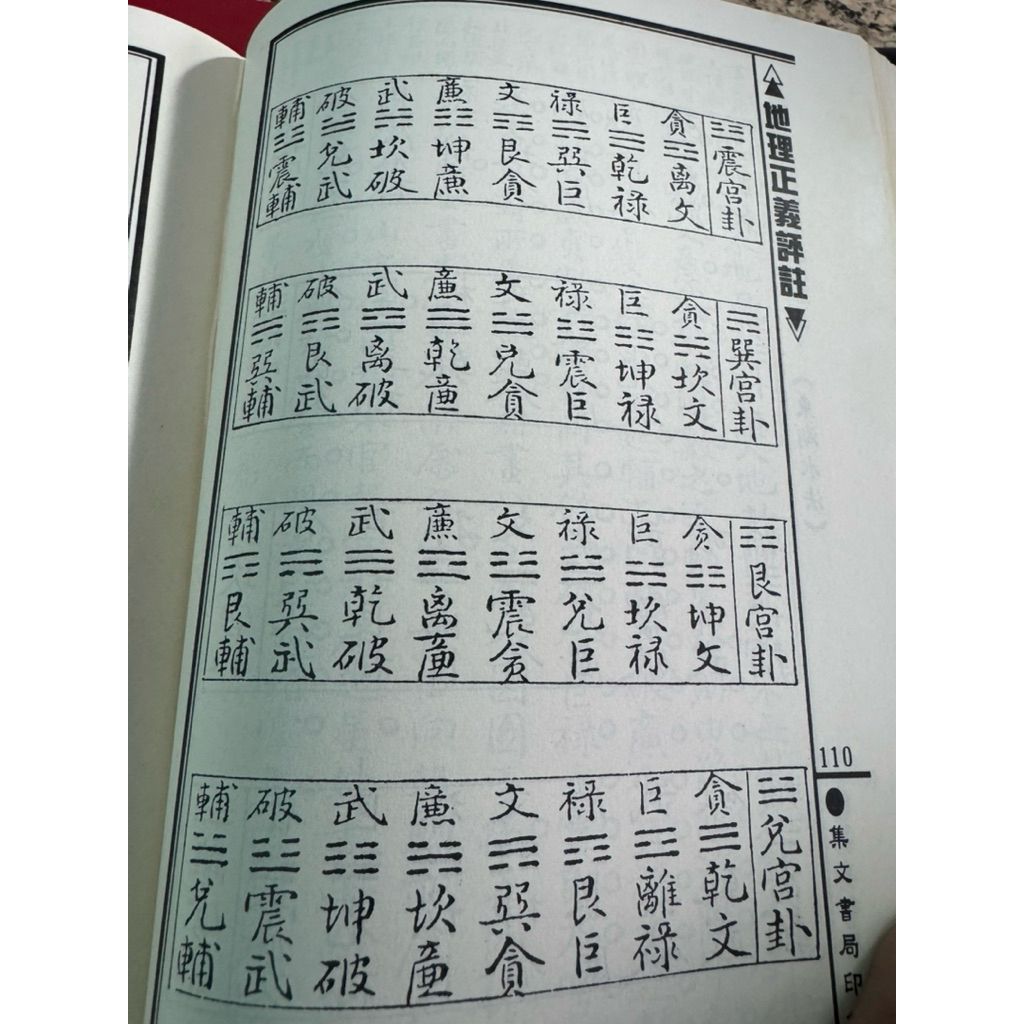 地理正義評註
110
集文書局印
☳震宮卦
貪☲离文
巨☰乾祿
祿☴巽巨
文☶艮貪
廉☷坤廉
武☵坎破
破☱兌武
輔☳震輔
☴巽宮卦
貪☵坎文
巨☷坤祿
祿☳震巨
文☱兌貪
廉☰乾廉
武☲离破
破☶艮武
輔☴巽輔
☶艮宮卦
貪☷坤文
巨☵坎祿
祿☱兌巨
文☳震貪
廉☲离廉
武☰乾破
破☴巽武
輔☶艮輔
☱兌宮卦
貪☰乾文
巨☲離祿
祿☶艮巨
文☴巽貪
廉☵坎廉
武☷坤破
破☳震武
輔☱兌輔